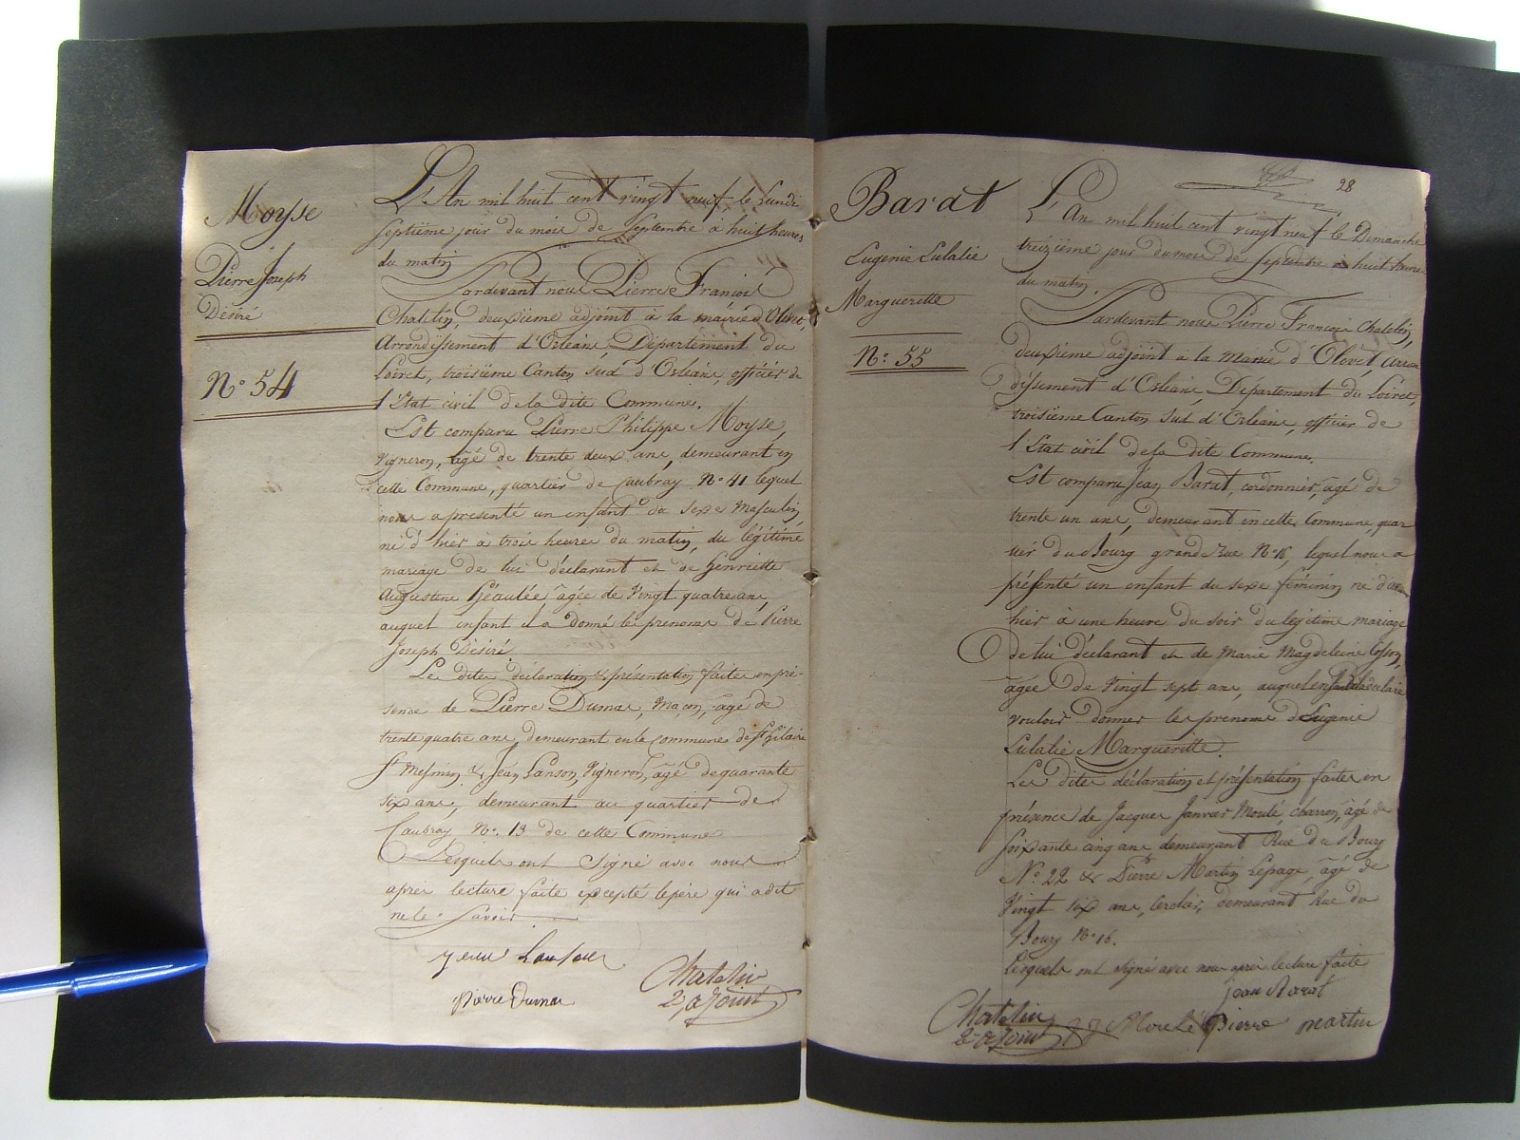 Moyse
Pierre Joseph
Désiré
N.° 54
L'An mil huit cent vingt neuf le Lundi
septième jour du mois de Septembre à huit heures
du matin
Pardevant nous Pierre François
Chatelin, deuxième adjoint à la mairie d'Olivet,
Arrondissement d'Orléans, Département du
Loiret, troisième Canton sud d'Orléans, officier de
l'Etat civil de la dite Commune.
Est comparu Pierre Philippe Moyse,
vigneron, âgé de trente deux ans, demeurant en
cette Commune, quartier de Caubray N.° 41 lequel
nous a présenté un enfant du sexe masculin
né d'hier à trois heures du matin, du légitime
mariage de lui déclarant et de Henriette
Augustine âgée de vingt quatre ans,
auquel enfant il a donné les prénoms de Pierre
Joseph Désiré.
Les dites déclaration & présentation faites en pré-
sence de Pierre Dumas, Maçon, âgé de
trente quatre ans, demeurant en la commune de St. Hilaire
St. Mesmin & Jean Lanson, Vigneron, âgé de quarante
six ans, demeurant au quartier de
Caubray N.° 13 de cette Commune
Lesquels ont signé avec nous
après lecture faite excepté le père qui a dit
ne le savoir
Pierre Dumas
Chatelin
2e ajoint
28
Barat
Eugenie Eulalie
Marguerette
N.° 55
L'An mil huit cent vingt neuf le Dimanche
treizième jour du mois de Septembre à huit heures
du matin,
Pardevant nous Pierre François Chatelin,
deuxième adjoint à la Mairie d'Olivet, arron
dissement d'Orléans, Département du Loiret,
troisième Canton Sud d'Orléans, officier de
l'Etat civil de la dite Commune.
Est comparu Jean Barat, cordonnier, âgé de
trente un ans, demeurant en cette Commune, quar
tier du Bourg grande rue N.° 16, lequel nous a
présenté un enfant du sexe féminin né d'avan
hier à une heure du soir du légitime mariage
de lui déclarant et de Marie Magdeleine Cosson,
âgée de vingt sept ans, auquel enfant
vouloir donner les prénoms d'Eugenie
Eulalie Marguerette.
Les dites déclaration et présentation faites en
présence de Jacques Janvier Moulé, charron, âgé de
soixante cinq ans demeurant Rue du Bourg
N.° 22 & Pierre Martin Lepage, âgé de
vingt six ans, demeurant Rue du
Bourg N.° 16.
Lesquels ont signé avec nous après lecture faite
jean Barat
Chatelin
2e ajoint
Pierre martin